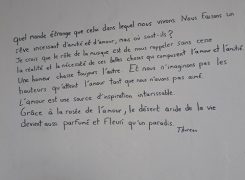 Quel monde étrange que celui dans lequel nous vivons. Nous faisons un
rêve incessant d'unité et d'amour, mais où sont-ils?
Je crois que le rôle de la musique est de nous rappeler sans cesse
la réalité et la nécessité de ces belles choses qui composent l'amour et l'amitié.
Une honneur chasse toujours l'autre. Et nous n'imaginons pas les
hauteurs qu'atteint l'amour tant que nous n'avons pas aimé.
L'amour est une source d'inspiration intarissable.
Grâce à la rosée de l'amour, le désert aride de la vie
devient aussi parfumé et fleuri qu'un paradis.